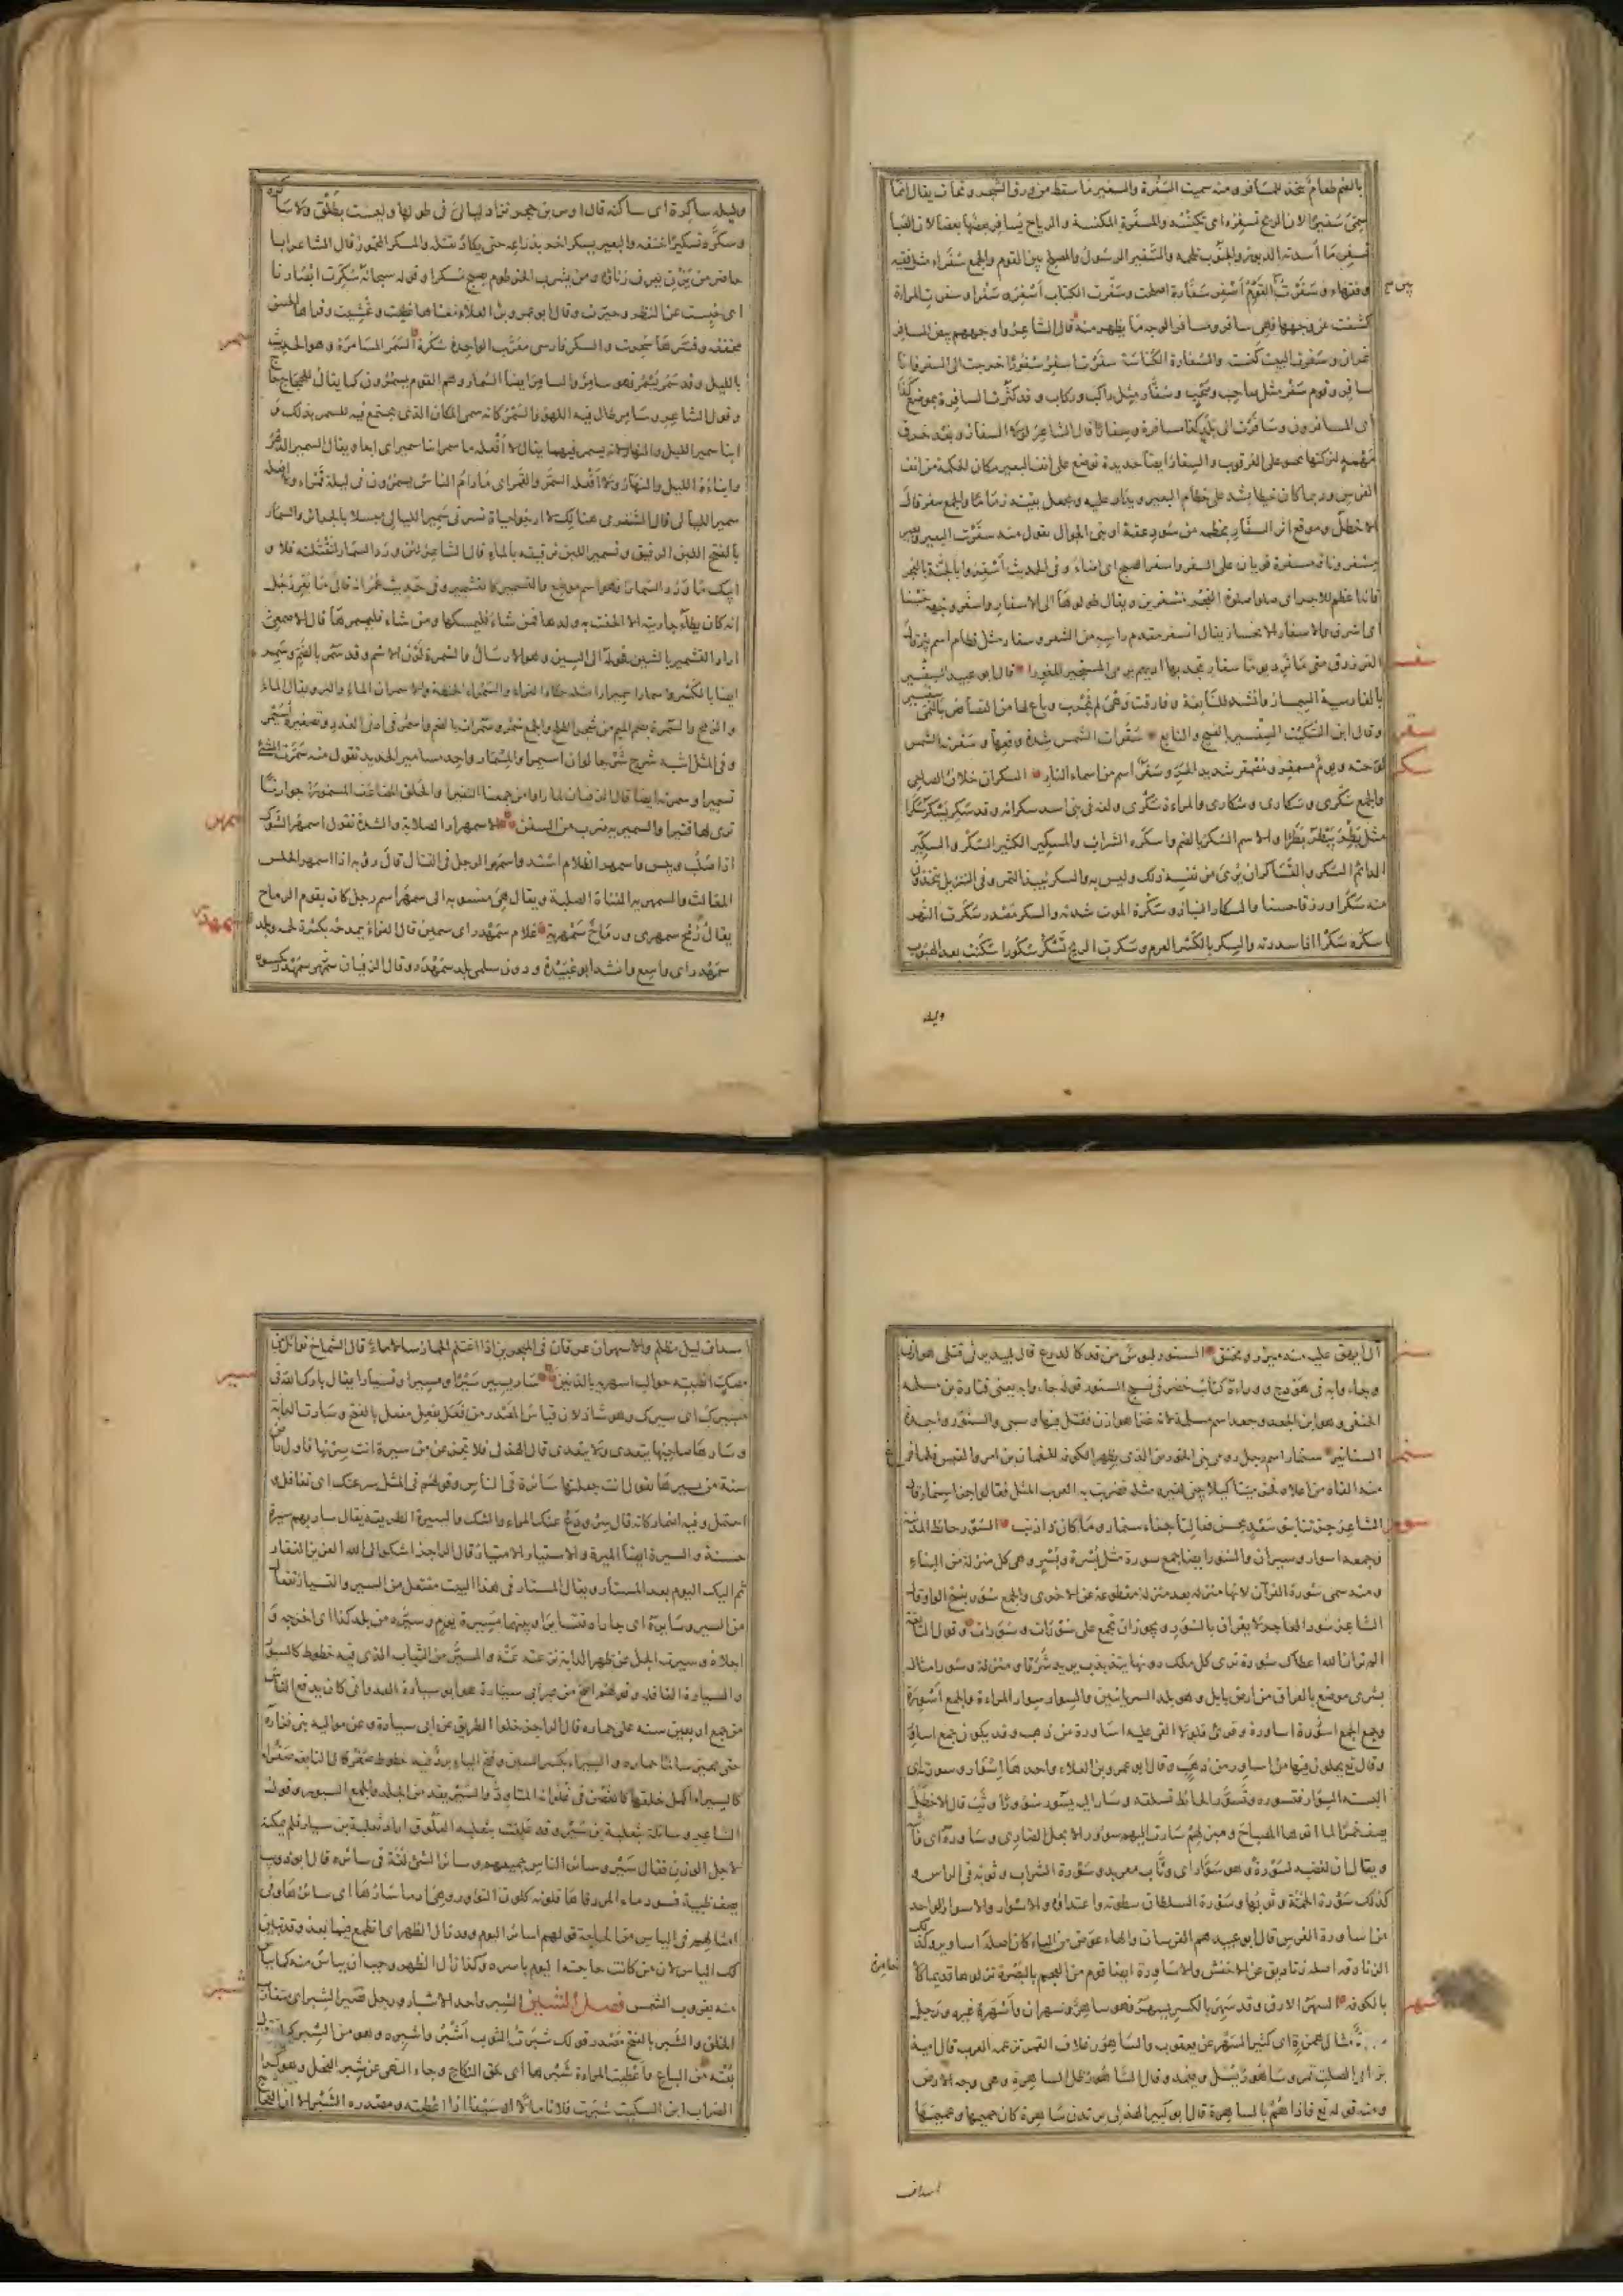 بالضم طعام يتخذ للمسافر ومنه سميت السفرة والسفير ما سقط من ورق الشجر وتحات يقال انما
سمي سفيرا لان الريح تسفره اى تكنسه والمسفرة المكنسة والرياح يسافر بعضها بعضا لان الصبا
تسفر ما أسدته الدبور والجنوب تلحمه والسفير الرسول والمصلح بين القوم والجمع سفراء مثل فقيه
وفقهاء وسفرت بين القوم أسفر سفارة اصلحت وسفرت الكتاب أسفره سفرا وسفرت المراة
كشفت عن وجهها فهى سافر ومسافر الوجه ما يظهر منه قال الشاعر واوجههم بيض المسافر
غران وسفرت البيت كنست والسفارة الكناسة سفرت اسفر سفورا خرجت الى السفر فانا
سافر وقوم سفر مثل صاحب وصحب وسفار مثل راكب وركاب وقد كثرت السافرة بموضع كذا
اى المسافرون وسافرت الى بلد كذا مسافرة وسفارا قال الشاعر لولا السفار وبعد خرق
مهمه لتركتها تحبو على العرقوب والسفار ايضا حديدة توضع على انف البعير مكان الحكمة من انف
الفرس وربما كان خيطا يشد على خطام البعير ويدار عليه ويجعل بقيته زماما والجمع سفر قال
الاخطل وموقع اثر السفار بخطمه من سود عقة او بنى الجوال تقول منه سفرت البعير
مسفر وناقة مسفرة قويان على السفر واسفر الصبح اى اضاء وفى الحديث أسفروا بالفجر
فانه اعظم للاجر اى صلوا صلوة الفجر مسفرين ويقال طولوها الى الاسفار واسفر وجهه حسنا
اى اشرق والاسفار الانحسار يقال اسفر مقدم راسه من الشعر وسفار مثل قطام اسم بئر قال
الفرزدق متى ما ترد يوما سفار تجد بها اديهم يرمى المستجيز المعورا قال ابو عبيد السفسير
بالفارسية السمسار وانشد للنابغة وقارفت وهى لم تجرب وباع لها من الفصافص بالنمى سفسير
وقال ابن السكيت السفسير الفيج والتابع سقرات الشمس شدة وقعها وسقرته الشمس
لوحته ويوم مسمقر ومصمقر شديد الحر وسقر اسم من اسماء النار السكران خلاف الصاحى
والجمع سكرى وسكارى وسكارى والمراة سكرى ولغة فى بنى اسد سكرانة وقد سكر يسكر سكرا
مثل بطر يبطر بطرا والاسم السكر بالضم واسكره الشراب والمسكير الكثير السكر والسكير
الدائم السكر والتساكر ان يرى من نفسه ذلك وليس به والسكر نبيذ التمر وفى التنزيل تتخذون
منه سكرا ورزقا حسنا والسكار النباذ وسكرة الموت شدته والسكر مصدر سكرت النهر
اسكره سكرا اذا سددته والسكر بالكسر العرم وسكرت الريح تسكر سكورا سكنت بعد الهبوب
وليلة
وليلة ساكرة اى ساكنة قال اوس بن حجر تزاد ليالى فى طولها وليست بطلق ولا ساكره
وسكره تسكيرا خنقه والبعير يسكر اخر بذراعه حتى يكاد يقتله والمسكر المخمور قال الشاعر ابا
حاضر من يزن يعرف زناؤه ومن يشرب الخرطوم يصبح مسكرا وقوله سبحانه سكرت ابصارنا
اى حبست عن النظر وحيرت وقال ابو عمرو بن العلاء معناها غطيت وغشيت وقراها الحسن
مخففة وفسرها سحرت والسكر فارسى معرب الواحدة سكرة السمر المسامرة وهو الحديث
بالليل وقد سمر يسمر فهو سامر والسامر ايضا السمار وهم القوم يسمرون كما يقال للحجاج حاج
وقول الشاعر وسامر طال فيه اللهو والسمر كانه سمى المكان الذى يجتمع فيه للسمر بذلك و
ابنا سمير الليل والنهار لانه يسمر فيهما يقال لا افعله ما سمر ابنا سمير اى ابدا ويقال السمير الدهر
وابناءه الليل والنهار ولا أفعله السمر والقمر اى ما دام الناس يسمرون فى ليلة قمراء ولا افعله
سمير الليالى قال الشنفرى هنالك لا ارجو حياة تسرنى سمير الليالى مبسلا بالجرائر والسمار
بالفتح اللبن الرقيق وتسمير اللبن ترقيقه بالماء قال الشاعر لئن ورد السمار لنقتلنه فلا و
ابيك ما ورد السمارا فهو اسم موضع والتسمير كالتشمير وفى حديث عمر انه قال ما يقر رجل
انه كان يطأ جاريته الا الحقت به ولدها فمن شاء فليمسكها ومن شاء فليسمرها قال الاصمعى
اراد التشمير بالشين فحوله الى السين وهو الارسال والسمرة لون الاسمر وقد سمر بالضم وسمر
ايضا بالكسر واسمار اسميرارا مثله حكاه الفراء والسمراء الحنطة والاسمران الماء والبر ويقال الماء
والرمح والسمرة بضم الميم من شجر الطلح والجمع سمر وسمرات بالضم واسمر فى ادنى العدد وتصغيره أسيمر
وفى المثل اشبه شرج شرجا لو ان اسيمرا والمسمار واحد مسامير الحديد تقول منه سمرت الشئ
تسميرا وسمرته ايضا قال الزفيان لما راوا من جمعنا النفيرا والحلق المضاعف المسمورا جوارنا
ترى لها قتيرا والسميرية ضرب من السفن الاسمهرار الصلابة والشدة تقول اسمهر الشوك
اذا صلب ويبس واسمهر الظلام اشتد واسمهر الرجل فى القتال قال روبة اذا اسمهر الحلس
المغالث والسمهرية القناة الصلبة ويقال هى منسوبة الى سمهر اسم رجل كان يقوم الرماح
يقال رمح سمهرى ورماح سمهرية غلام سمهدر اى سمين قال الفراء يمدحه بكثرة لحمه وبلد
سمهدر اى واسع وانشد ابو عبيدة ودون سلمى بلد سمهدر وقال الزفيان سمهر سمهدر يكسوه
آل ابريق عليه منه ميزر ومخنق السنور لبوس من قد كالدرع قال لبيد يرثى قتلى هوازن
وجاء وابه فى هودج ووراءه كتائب خضر فى نسيج السنور قوله جاء وابه يعنى قتادة بن مسلمة
الحنفى وهو ابن الجعد وجعد اسم مسلمة لانه غزا هوازن فقتل فيها وسبى والسنور واحد
السنانير سنمار اسم رجل رومى بنى الخورنق الذى بظهر الكوفة للنعمان بن امرء القيس فلما فرغ
منه القاه من اعلاه فخر ميتا كيلا يبنى لغيره مثله فضرب به العرب المثل فقالوا جزا سنمار قال
الشاعر جزتنا بنو سعد بحسن فعالنا جزاء سنمار وما كان ذا ذنب السور حائط المدينة
وجمعه اسوار وسيران والسور ايضا جمع سورة مثل بسرة وبسر وهى كل منزلة من البناء
ومنه سمى سورة القرآن لانها منزلة بعد منزلة مقطوعة عن الاخرى والجمع سور بفتح الواو قال
الشاعر سود المحاجر لا يقران بالسور ويجوز ان تجمع على سورات وسورات وقول النابغة
الم تر ان الله اعطاك سورة ترى كل ملك دونها يتذبذب يريد شرفا ومنزلة وسورا مثال
بشرى موضع بالعراق من ارض بابل وهو بلد السريانيين والسوار سوار المراة والجمع أسورة
وجمع الجمع اساورة وقرئ فلولا القى عليه اساورة من ذهب وقد يكون جمع اساور
وقال تع يحلون فيها من اساور من ذهب وقال ابو عمرو بن العلاء واحدها إسوار وسورته اى
البسته السوار فتسوره وتسور الحائط تسلقه وسار اليه يسور سؤورا وثب قال الاخطل
يصف خمرا لما اتوها بمصباح ومبزلهم سارت اليهم سؤور الابجل الضارى وساوره اى واثبه
ويقال ان لغضبه لسورة وهو سوار اى وثاب معربد وسورة الشراب وثوبه فى الراس و
كذلك سورة الحمة وثوبها وسورة السلطان سطوته واعتداؤه والاسوار والاسوار الواحد
من اساورة الفرس قال ابو عبيد هم الفرسان والهاء عوض من الياء كان اصله اساوير وكذلك
الزنادقة اصله زناديق عن الاخفش والاساورة ايضا قوم من العجم بالبصرة نزلوها قديما كالاحامرة
بالكوفة السهر الارق وقد سهر بالكسر يسهر فهو ساهر وسهران وأسهره غيره ورجل
مثال همزة اى كثير السهر عن يعقوب والساهور غلاف القمر تزعمه العرب قال امية
بن ابى الصلت قمر وساهور يسل ويغمد وقال الساهور ظل الساهرة وهى وجه الارض
ومنه قوله تع فاذا هم بالساهرة قال ابو كبير الهذلى يرتدن ساهرة كان جميمها وعميمها
اسداف
اسداف ليل مظلم والاسهران عرقان فى المنخرين اذا اغتلم الحمار سالا ماء قال الشماخ توائل من
مصك انصبته حوالب اسهريه بالذنين سار يسير سيرا ومسيرا وتسيارا يقال بارك الله فى
مسيرك اى سيرك وهو شاذ لان قياس المصدر من فعل يفعل مفعل بالفتح وسارت الدابة
وسارها صاحبها يتعدى ولا يتعدى قال الهذلى فلا تجزعن من سيرة انت سرتها فاول راض
سنة من يسيرها يقول انت جعلتها سائرة فى الناس وقولهم فى المثل سر عنك اى تغافل و
احتمل وفيه اضمار كانه قال سر ودع عنك المراء والشك والسيرة الطريقة يقال سار بهم سيرة
حسنة والسيرة ايضا الميرة والاستيار الامتيار قال الراجز اشكو الى الله العزيز الغفار
ثم اليك اليوم بعد المستار ويقال المستار فى هذا البيت مفتعل من السير والتسيار تفعال
من السير وسايره اى جاراه فتسايرا وبينهما مسيرة يوم وسيره من بلده كذا اى اخرجه و
اجلاه وسيرت الجل عن ظهر الدابة نزعته عنه والمسير من الثياب الذى فيه خطوط كالسيور
والسيارة القافلة وقولهم اصح من عير ابى سيارة هو ابو سيارة العدوانى كان يدفع الناس
من جمع اربعين سنة على حماره قال الراجز خلوا الطريق عن ابى سيارة وعن مواليه بنى فزارة
حتى يجيز سالما حماره والسيراء بكسر السين وفتح الياء برد فيه خطوط صفر قال النابغة صفراء
كالسيراء اكمل خلقها كالغصن فى غلوائه المتاود والسير ما يقد من الجلد والجمع السيور وقول
الشاعر وسائلة بثعلبة بن سير وقد علقت بثعلبة العلوق اراد ثعلبة بن سيار فلم يمكنه
لاجل الوزن فقال سير وسائر الناس جميعهم وسار الشئ لغة فى سائره قال ابو ذويب
يصف ظبية فسود ماء المرد فاها فلونه كلون النؤور وهى ادماء سارها اى سائرها وفى
امثالهم فى اليأس من الحاجة قولهم اسائر اليوم وقد زال الظهر اى اتطمع فيما بعد وقد تبين
لك اليأس لان من كانت حاجته اليوم باسره وقد زال الظهر وجب ان ييأس منه كما ييأس
منه بغروب الشمس فصل الشين الشبر واحد الاشبار ورجل قصير الشبر اى متقارب
الخلق والشبر بالفتح مصدر قولك شبرت الثوب أشبر واشبره وهو من الشبر كما تقول
بعته من الباع واعطيت المراة شبرها اى حق النكاح وجاء النهى عن شبر الفحل وهو كرا
الضراب ابن السكيت شبرت فلانا مالا او سيفا اذا اعطيته ومصدره الشبر الا ان العجاج